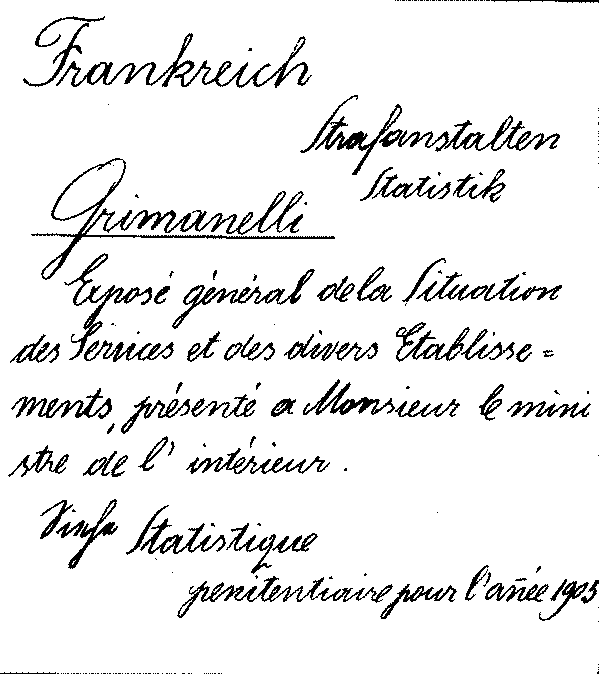 Frankreich
Strafanstalten
Statistik
Grimanelli
Exposé général de la Situation
des Services et des divers Etablisse=
ments, présenté a Monsieur le mini
stre de l' intérieur.
Siehe Statistique
penitentiaire pour l'añée 1905